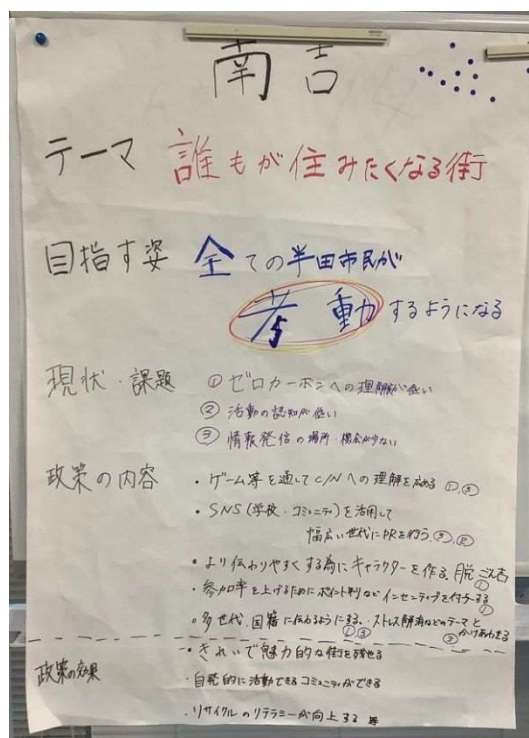 南吉
テーマ 誰もが住みたくなる街
目指す姿 全ての半田市民が
考動するようになる
現状・課題 ①ゼロカーボンへの理解が低い
②活動の認知が低い
③情報発信の場所・機会が少ない
政策の内容 ・ゲーム等を通してC/Nへの理解を広める ①,③
・SNS(学校・コミュニティ)を活用して
幅広い世代にPRを行う,③,②
・より伝わりやすくする為にキャラクターを作る,脱
①
・参加率を上げるためにポイント制などインセンティブを付与する
①
・多世代,国籍に伝わるようにする,ストレス解消などのテーマと
①③ ② かけあわせる
政策の効果 ・きれいで魅力的な街を残せる
・自発的に活動できるコミュニティができる
・リサイクルのリテラシーが向上する 等